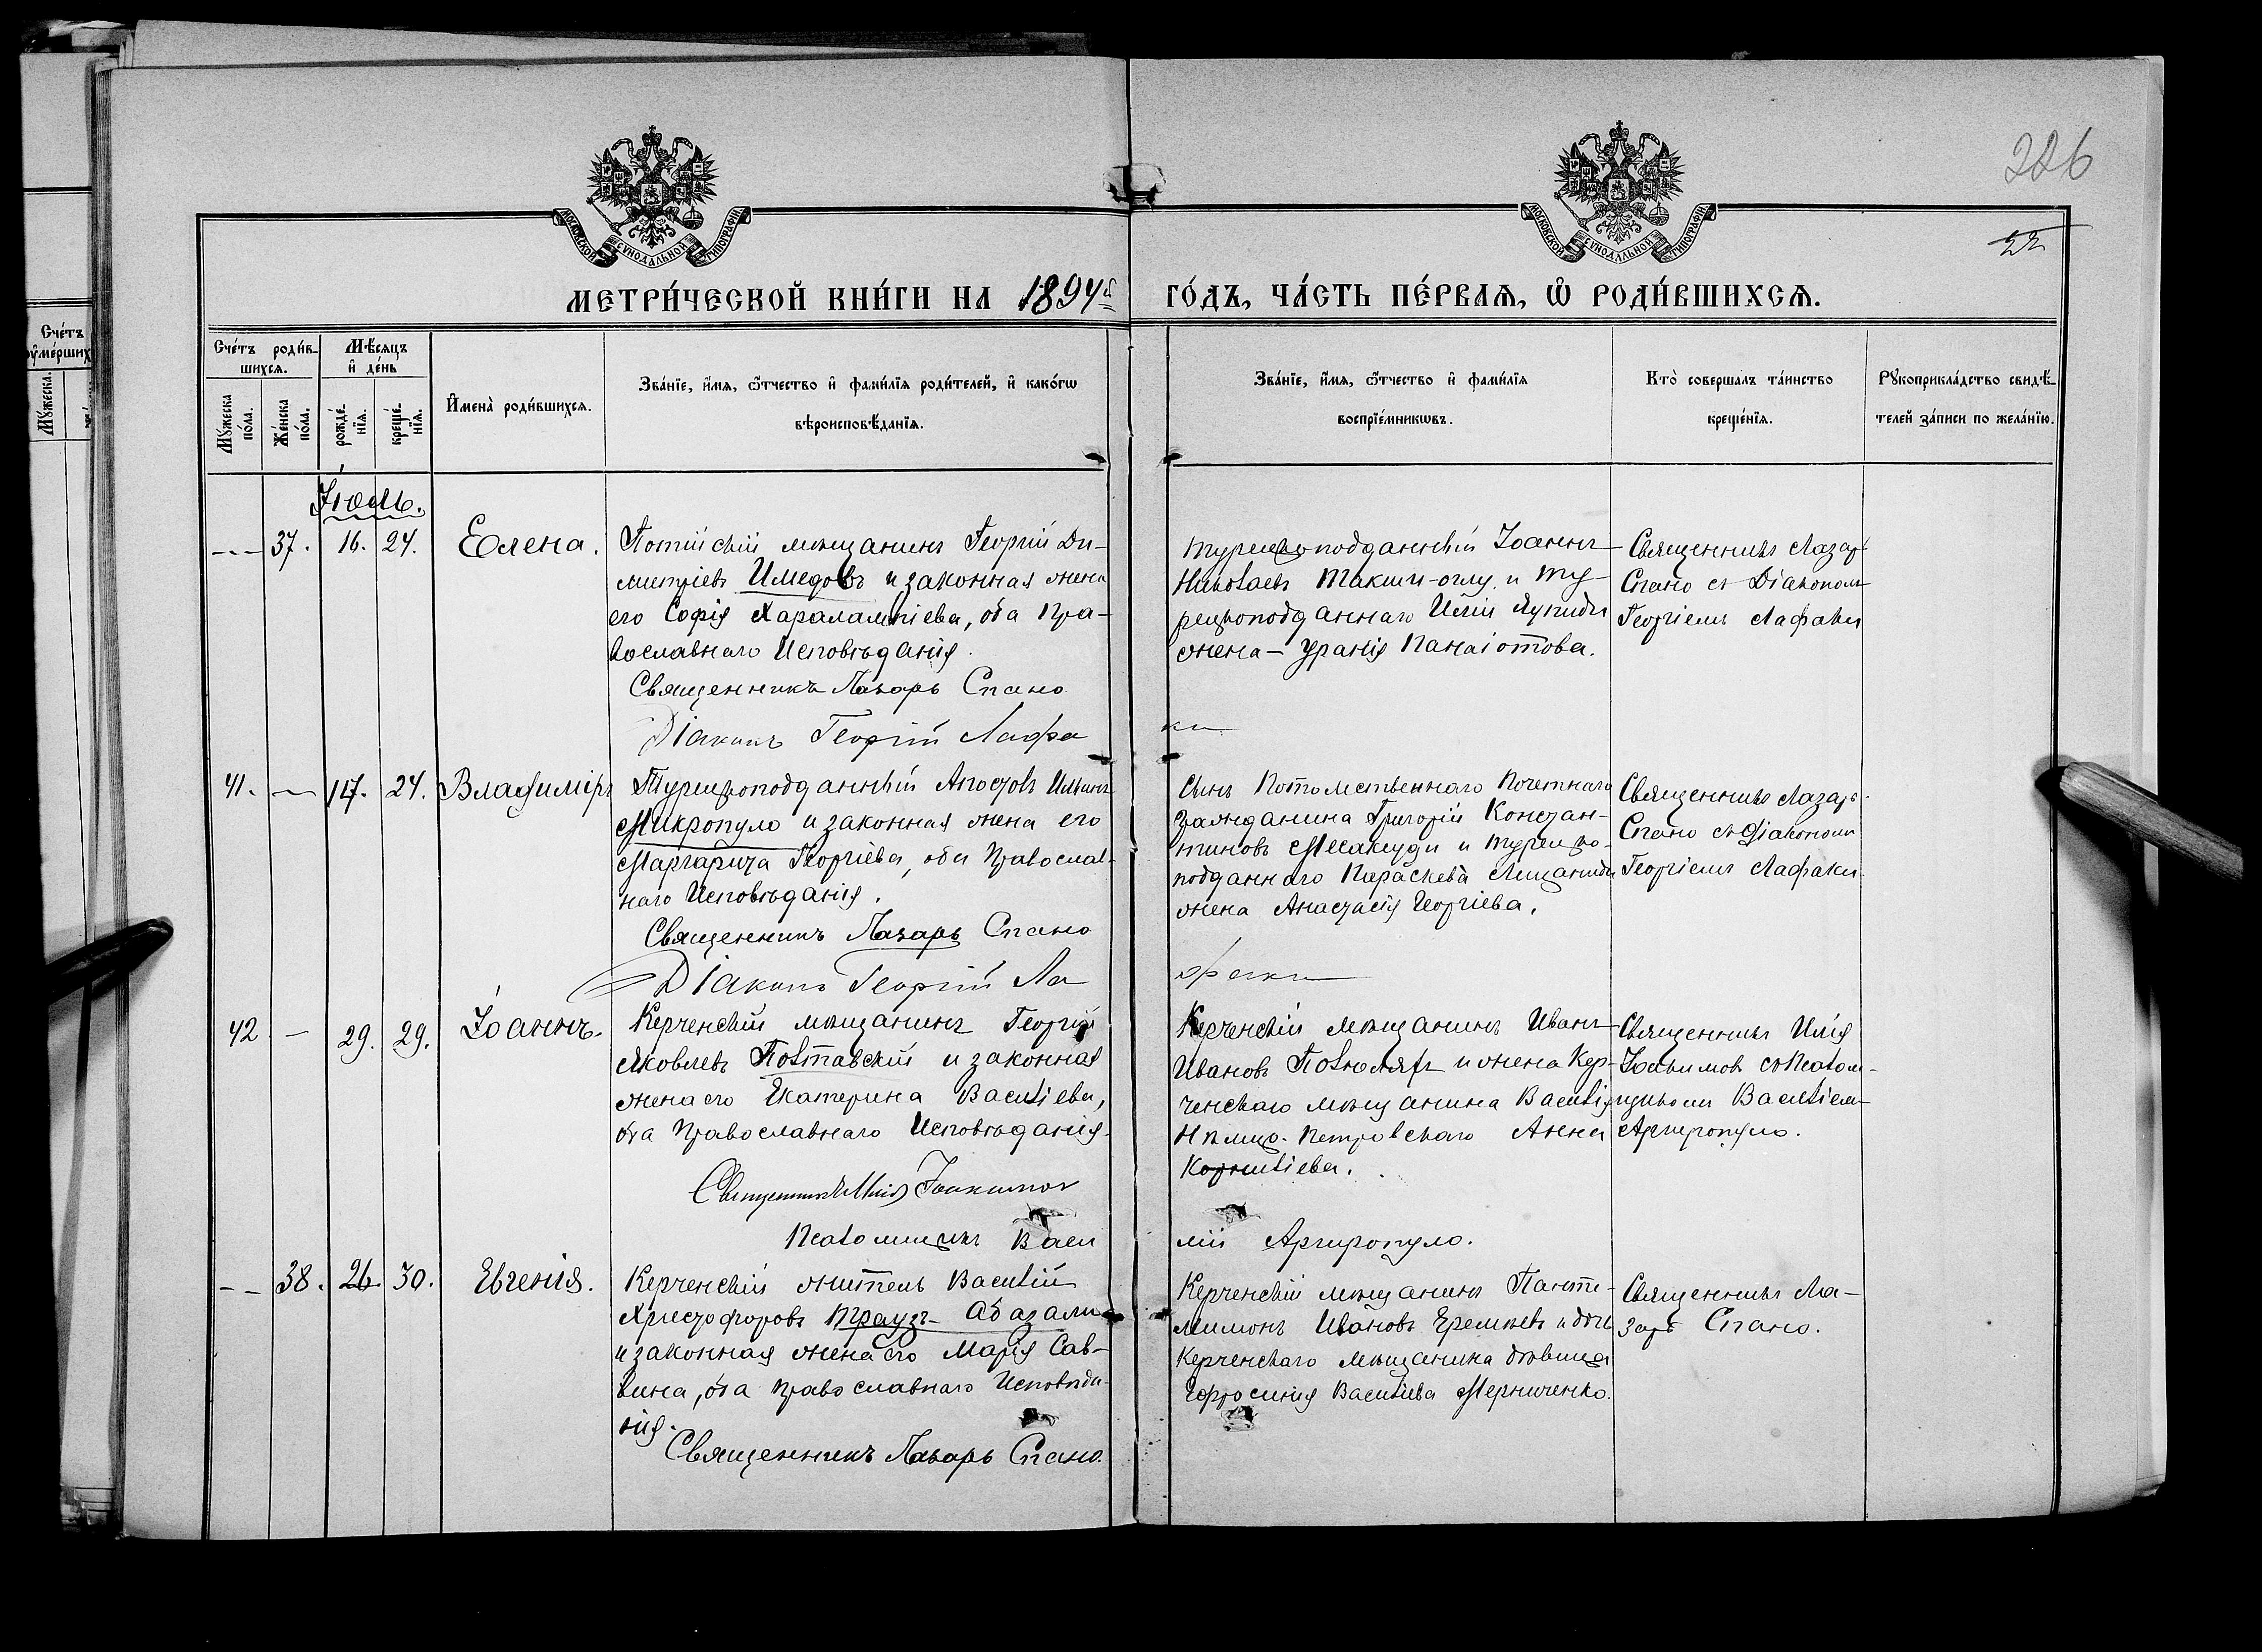 226
22
МОСКОВСКОЙ СѴНОДАЛЬНОЙ ТИПОГРАФІИ
МОСКОВСКОЙ СѴНОДАЛЬНОЙ ТИПОГРАФІИ
МЕТРИ́ЧЕСКОЙ КНИ́ГИ НА 1894й ГО́ДЪ, ЧА́СТЬ ПЕ́РВАѦ, Ѡ РОДИ́ВШИХСѦ.
Сче́тъ
Мꙋ́жеска
Сче́тъ роди́в-
шихсѧ.
Мѣ́сѧцъ
и҆ де́нь
Мꙋ́жеска
по́ла.
Же́нска
по́ла.
рожде́-
нїѧ.
креще́-
нїѧ.
И҆мена̀ роди́вшихсѧ.
Зва́нїе, и҆́мѧ, ѻ҆́тчество и҆ фами́лїѧ роди́телей, и҆ како́гѡ
вѣроисповѣ́данїѧ.
Зва́нїе, и҆́мѧ, ѻ҆́тчество и҆ фами́лїѧ
воспрїе́мникѡвъ.
Кто̀ соверша́лъ та́инство
креще́нїѧ.
Рꙋкоприкла́дство свидѣ́-
телей за́писи по жела́нїю.
Іюль.
-- 37. 16. 24. Елена.
Потійскій мѣщанинъ Георгій Ди-
митріевъ Имедовъ и законная жена
его Софія Харалампіева, оба Пра-
вославнаго Исповѣданія.
Священникъ Лазарь Спано
Діаконъ Георгій Лафа
ки
Турецкоподданный Іоаннъ
Николаевъ Такши-оглу и Ту-
рецкоподданнаго Иліи
жена - Уранія Панаіотова.
Священникъ Лазарь
Спано съ Діакономъ
Георгіемъ Лафаки
41. - 17. 24. Владиміръ
Турецкоподданный Апостолъ Ильинъ
Микропуло и законная жена его
Маргарита Георгіева, оба Православ-
наго Исповѣданія.
Священникъ Лазарь Спано
Діаконъ Георгій Ла
факи
Сынъ Потомственнаго Почетнаго
Гражданина Григорій Констан-
тиновъ Месаксуди и Турецко-
подданнаго Параскева
жена Анастасія Георгіева.
Священникъ Лазарь
Спано съ Діакономъ
Георгіемъ Лафаки.
42 - 29. 29. Іоаннъ.
Керченскій мѣщанинъ Георгій
Яковлевъ Полтавскій и законная
жена его Екатерина Василіева,
оба Православнаго Исповѣданія.
Священникъ Илія Іоакимов
Псаломщикъ Васи
лій Аргиропуло.
Керченскій мѣщанинъ Иванъ
Ивановъ и жена Кер-
ченскаго мѣщанина Василія
Нѣмцо-Петровскаго Анна
Корниліева.
Священникъ Илія
Іоакимовъ съ Псалом-
щикомъ Василіемъ
Аргиропуло.
-- 38. 26. 30. Евгенія.
Керченскій житель Василій
Христофоровъ Траузъ-Абазали
и законная жена его Марія Сав-
вина, оба Православнаго Исповѣда-
нія.
Священникъ Лазарь Спано.
Керченскій мѣщанинъ Панте-
лимонъ Ивановъ и дочь
Керченскаго мѣщанина дѣвица
Ефросинія Василіева Мерниченко.
Священникъ Ла-
зарь Спано.